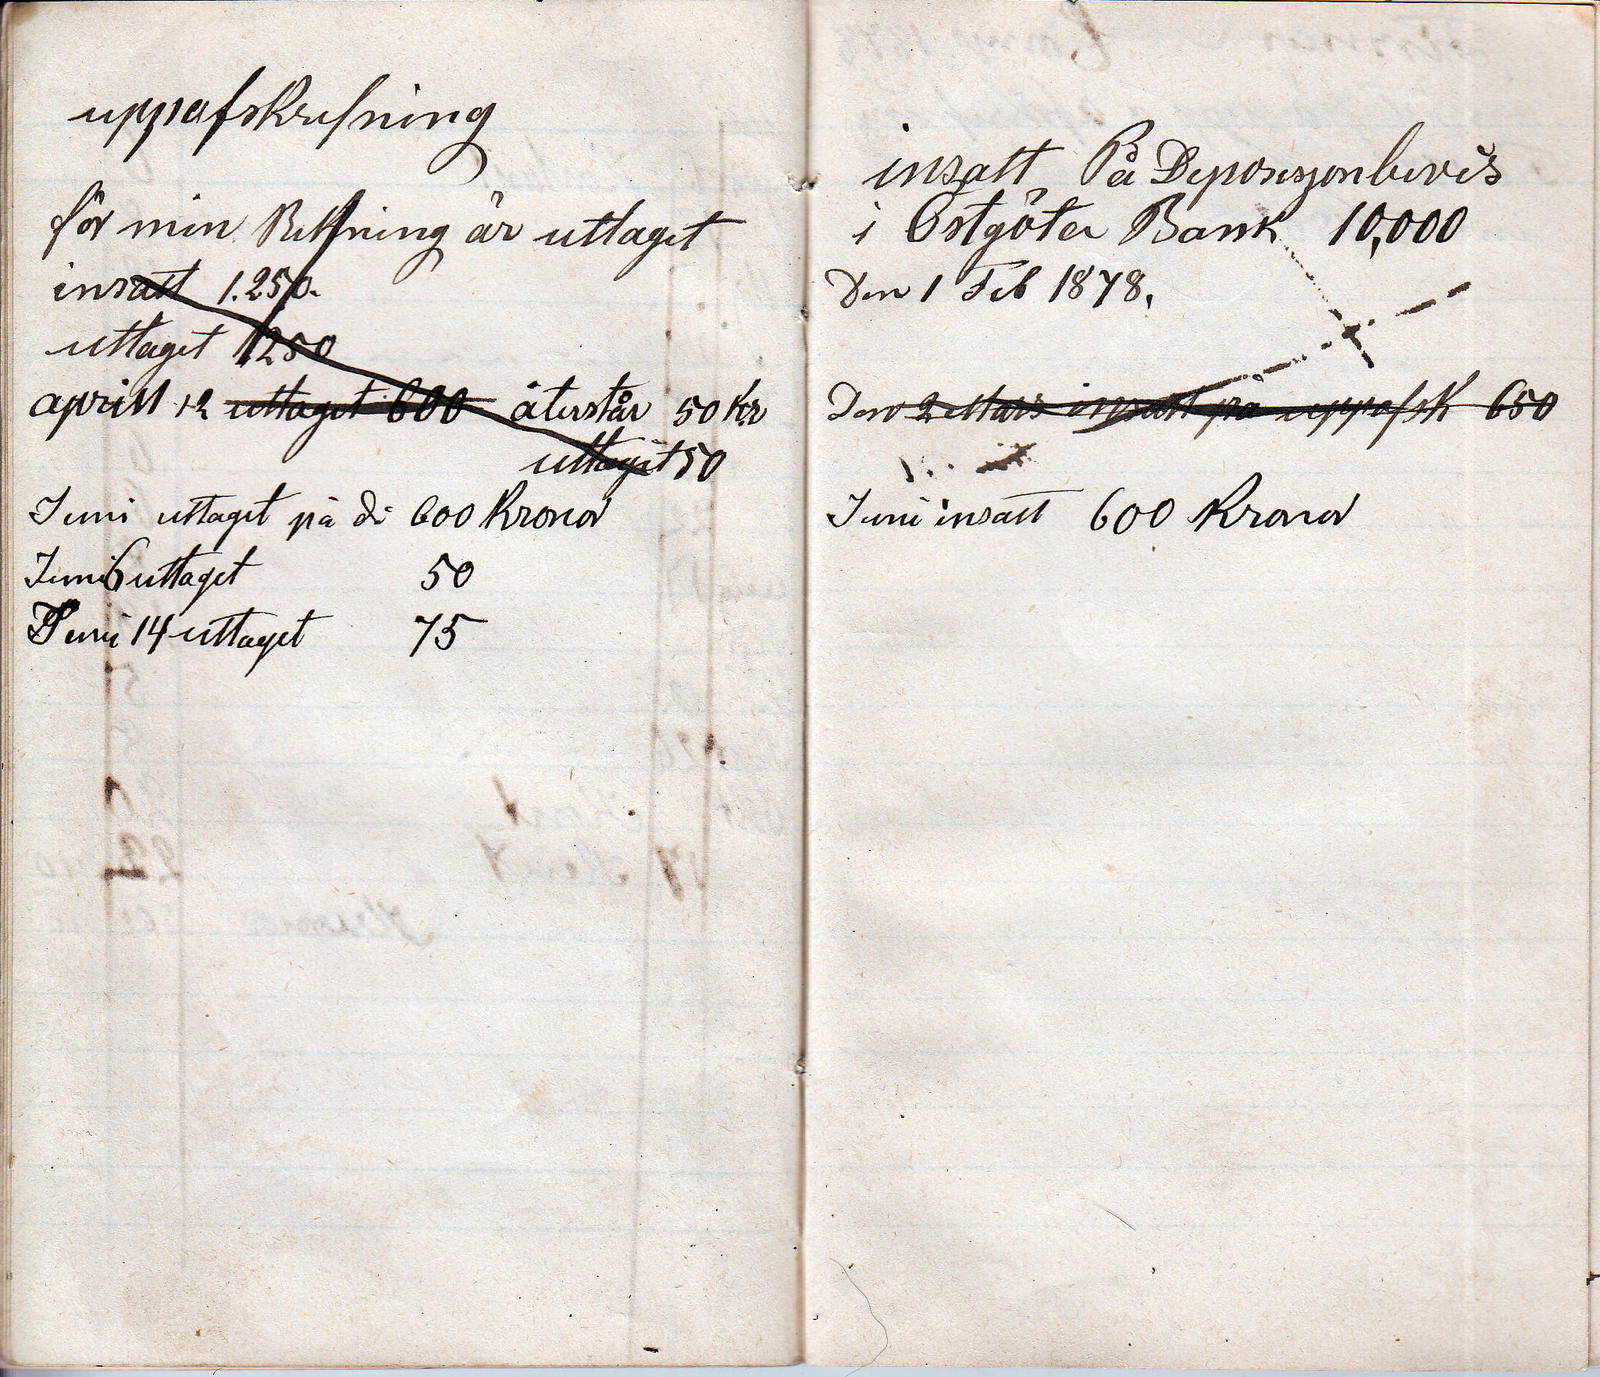 uppafskrifning
för min Räkning är uttaget
insatt 1.250.
uttaget 1250
aprill 12 uttaget 600 återstår 50 Kr
uttaget 50
Juni uttaget på di 600 Kronor
Juni 6 uttaget 50
Juni 14 uttaget 75
insatt På Deponsjonbevis
i Östgöta Bank 10,000
Den 1 Feb 1878.
Den 2 Mars insatt på uppafsk 650
Juni insatt 600 Kronor